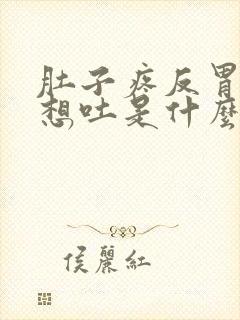 肚子疼反胃
想吐是什麼
侯麗紅